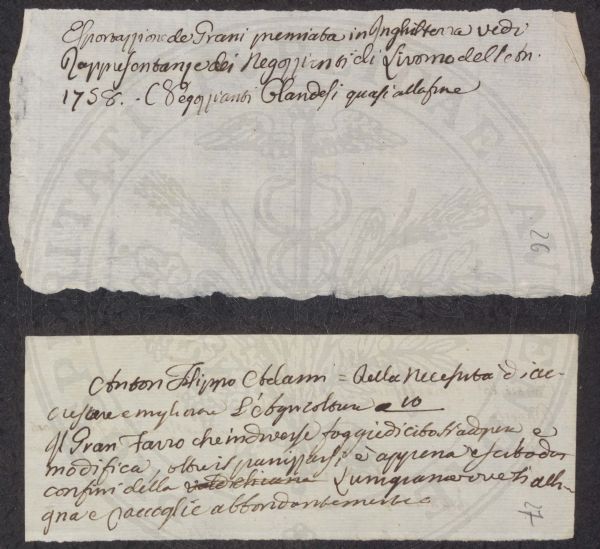 Esportazzione de Grani premiata in Inghilterra vedi
Rappresentanze dei Negozzianti di Livorno dell
1758. Negozzianti Olandesi quasi alla fine
26
Anton Filippo Adami = Della Necessità d' ac-
crescere e migliorare L'Agricoltura 10
Il Gran Farro che in diverse fogge di cibo s'adopra e
modifica, oltre il panizzarsi, è appena
confini della Valdichiana Lunigiana ove si alli-
gna e raccoglie abbondantemente
27